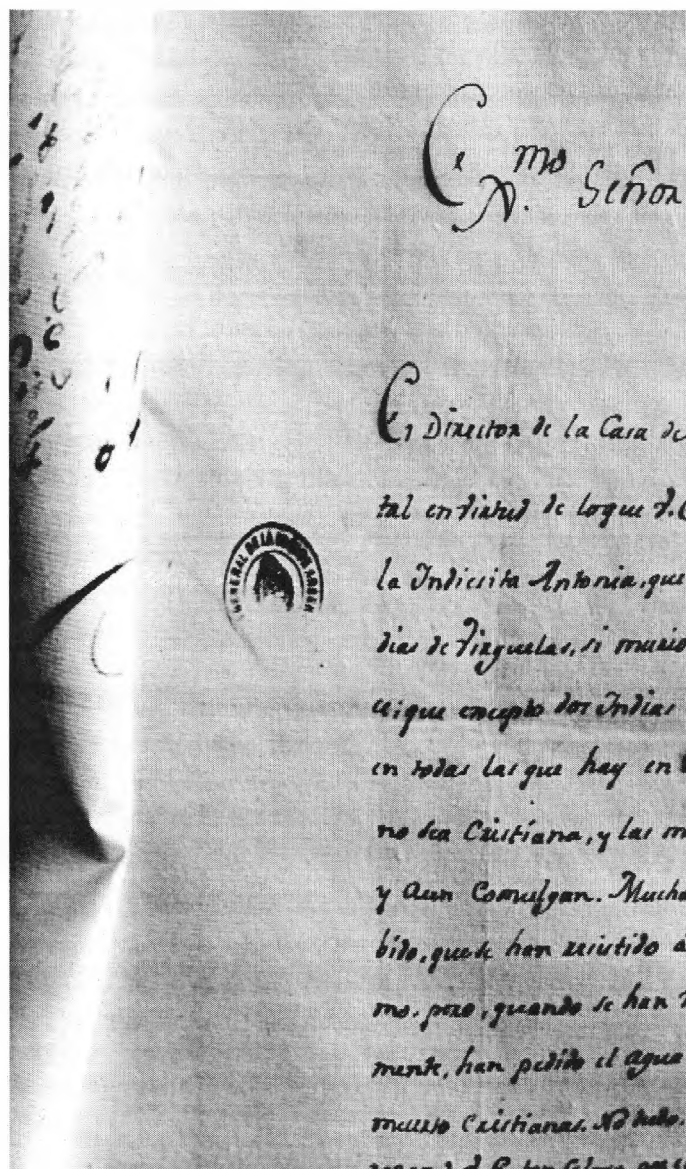 Exmo Señor
El Director de la Casa de
tal en virtud de loque V.
la Indiecita Antonia, que
dias de Virguelas, si murio
que excepto dos Indias
en todas las que hay en
no sea Cristiana, y las
y aun Comulgan. Mucha
bido, que se han resistido a
mo, pero, quando se han
mente, han pedido el agua
muerto Cristianas. No hubo
GENERAL DE LA